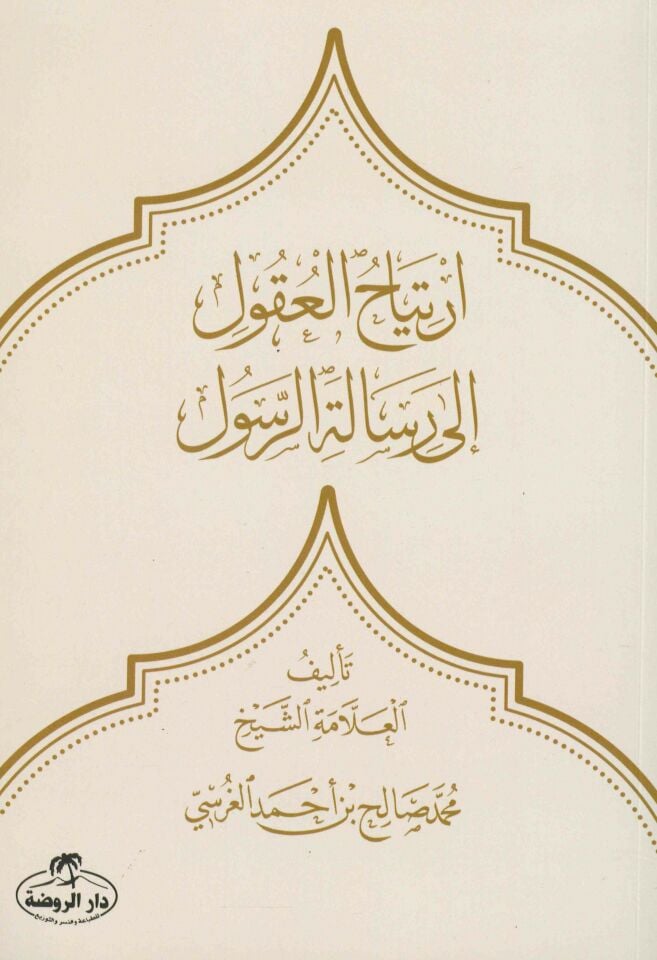 ارْتِيَاحُ الْعُقُولِ
إِلَى رِسَالَةِ الرَّسُول
تَأْلِيفُ
اَلْعَلَّامَةِ الشَّيْخِ
مُحَمَّد صَالِح بْن أَحْمَد الغُرْسِيّ
دار الروضة
للطباعة والنشر والتوزيع